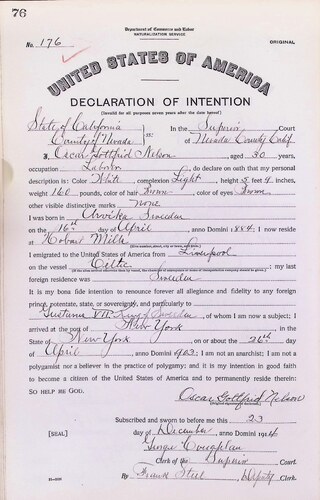 76
Department of Commerce and Labor
NATURALIZATION SERVICE
No. 176
ORIGINAL
UNITED STATES OF AMERICA
DECLARATION OF INTENTION
(Invalid for all purposes seven years after the date hereof)
State of California
County of Nevada
ss:
In the Superior Court
of Nevada County Calif
I, Oscar Gottfrid Nelson, aged 30 years,
occupation Laborer, do declare on oath that my personal
description is: Color White, complexion Light, height 5 feet 9 inches,
weight 160 pounds, color of hair Brown, color of eyes Brown
other visible distinctive marks None
I was born in Arvika Sweden
on the 16th day of April, anno Domini 1884; I now reside
at Hobart Mills
(Give number, street, city or town, and State.)
I emigrated to the United States of America from Liverpool
on the vessel ; my last
foreign residence was Sweden
It is my bona fide intention to renounce forever all allegiance and fidelity to any foreign
prince, potentate, state, or sovereignty, and particularly to
Gustavus VII King of Sweden, of whom I am now a subject; I
arrived at the port of New York, in the
State of New York, on or about the 26th day
of April, anno Domini 1903; I am not an anarchist; I am not a
polygamist nor a believer in the practice of polygamy; and it is my intention in good faith
to become a citizen of the United States of America and to permanently reside therein:
SO HELP ME GOD.
Oscar Gottfrid Nelson
Subscribed and sworn to before me this 23
[SEAL]
day of December, anno Domini 1914
George Coughlan
Clerk of the Superior Court.
By Frank Steel, Deputy Clerk.